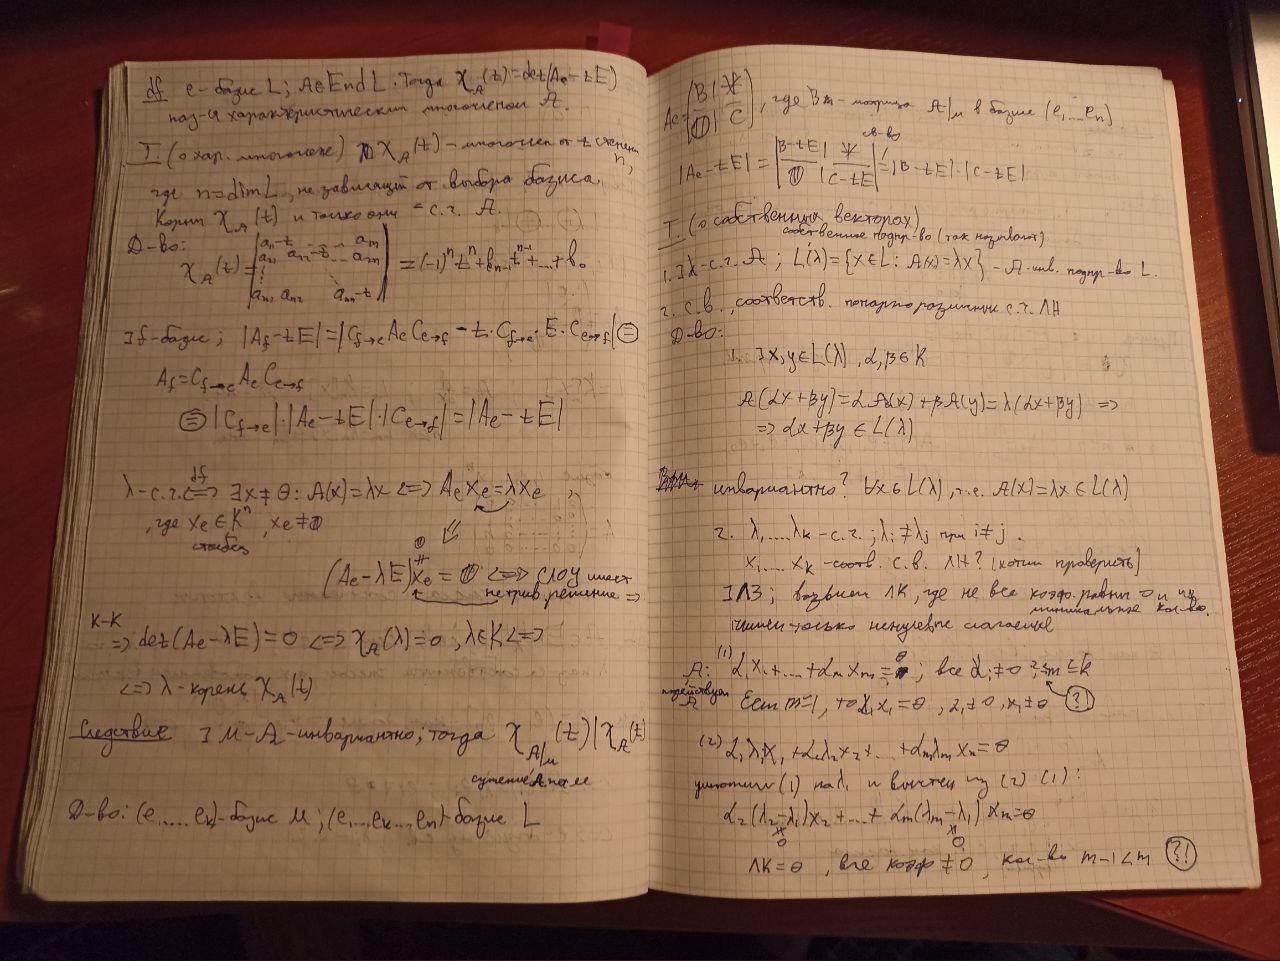 df e-базис L; A∈End L. Тогда χ_A(t)=det(A_e-tE)
наз-ся характеристическим многочленом A.
T. (о хар. многочлене) χ_A(t) - многочлен от t степени n,
где n=dim L, не зависящий от выбора базиса.
Корни χ_A(t) и только они - с.ч. A.
Д-во:
χ_A(t)=|a₁₁-t ... a₁n; a₂₁ a₂₂-t ... a₂n; ⋮ ; an₁ an₂ ann-t| = (-1)ⁿtⁿ+b_{n-1}t^{n-1}+...+b₀
∃ f-базис; |A_f-tE|=|C_{f→e} A_e C_{e→f} - t·C_{f→e}·E·C_{e→f}| ⊜
A_f=C_{f→e} A_e C_{e→f}
⊜ |C_{f→e}|·|A_e-tE|·|C_{e→f}|=|A_e-tE|
λ-с.ч. df⟺ ∃x≠θ: A(x)=λx ⟺ A_e x_e=λx_e ,
где x_e∈Kⁿ, x_e≠0
столбец
(A_e-λE)x_e=0 ⟺ СЛОУ имеет
нетрив. решение ⇒
К-К
⇒ det(A_e-λE)=0 ⟺ χ_A(λ)=0, λ∈K ⟺
⟺ λ-корень χ_A(t)
Следствие ∃ M-A-инвариантно; тогда χ_{A|M}(t)|χ_A(t)
сужение A на M
Д-во: (e₁...e_k)-базис M; (e₁...e_k...e_n)-базис L
A_e=(B|*; 0|C), где B - матрица A|_M в базисе (e₁...
|A_e-tE|=|B-tE|*; 0|C-tE| = |B-tE|·|C-tE|
св-во
T. (о собственных векторах)
собственное подпр-во (так называют)
1. ∃ λ-с.ч. A; L(λ)={x∈L: A(x)=λx} - A-инв. подпр-во L.
2. с.в., соответств. попарно различным с.ч. ЛН
Д-во:
1. ∃ x,y∈L(λ), α,β∈K
A(αx+βy)=αA(x)+βA(y)=λ(αx+βy) ⇒
⇒ αx+βy∈L(λ)
инвариантно? ∀x∈L(λ), т.е. A(x)=λx∈L(λ)
2. λ₁,...,λ_k-с.ч.; λ_i≠λ_j при i≠j.
x₁,...x_k-соотв. с.в. ЛН? (хотим проверить)
∃ ЛЗ; возьмем ЛК, где не все коэф. равны 0 и
минимальное кол-во.
Пишем только ненулевые слагаемые
A: (1) α₁x₁+...+α_m x_m=θ; все α_i≠0 2≤m≤k
подействуем
A Если m=1, то α₁x₁=θ, α₁≠0, x₁≠θ ?!
(2) α₁λ₁x₁+α₂λ₂x₂+...+α_mλ_m x_m=θ
умножим (1) на λ₁ и вычтем из (2) (1):
α₂(λ₂-λ₁)x₂+...+α_m(λ_m-λ₁)x_m=θ
≠0 ≠0
ЛК=θ, все коэф ≠0, кол-во m-1<m ?!